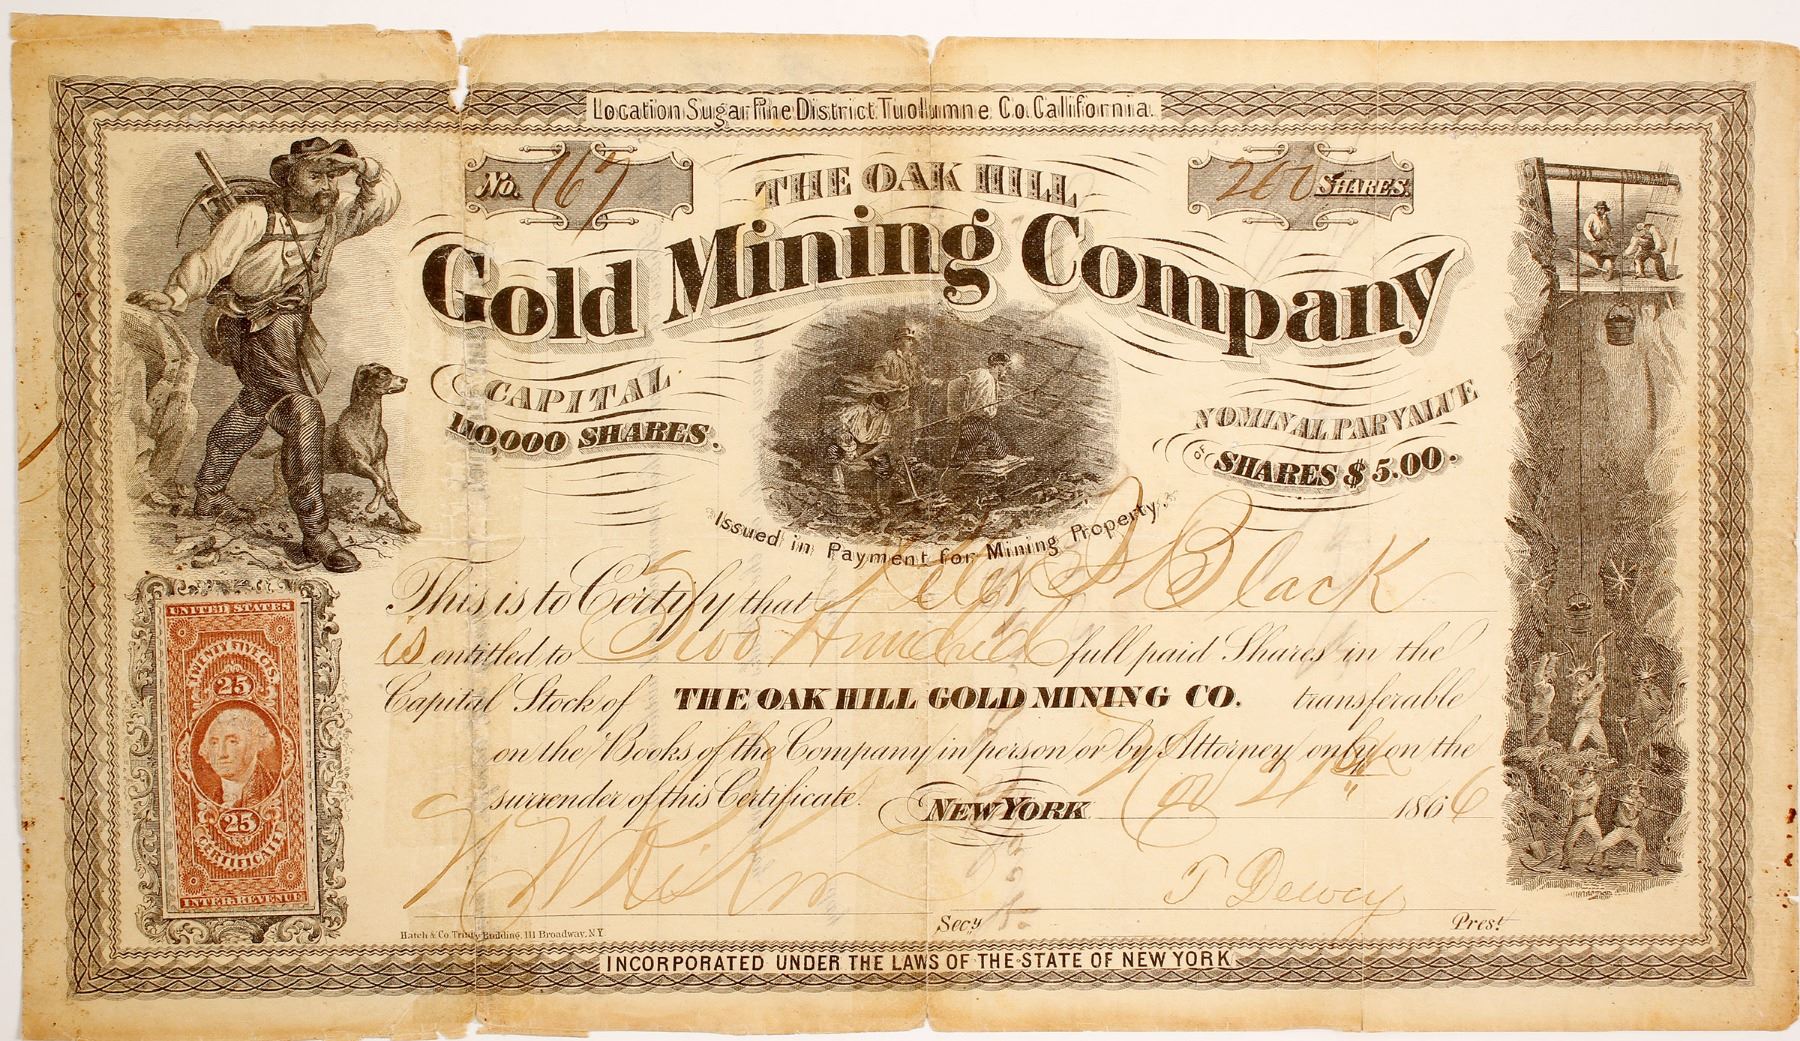 Location Sugar Pine District. Tuolumne Co. California.
No. 167
200 SHARES.
THE OAK HILL
Gold Mining Company
CAPITAL
110,000 SHARES.
NOMINAL PAR VALUE
OF SHARES $5.00.
Issued in Payment for Mining Property.
This is to Certify that Peter S Black
is entitled to Two Hundred full paid Shares in the
Capital Stock of THE OAK HILL GOLD MINING CO. transferable
on the Books of the Company in person or by Attorney only on the
surrender of this Certificate. NEW YORK Nov 21st 1866
T Dewey
Secy Prest
Hatch & Co Trinity Building, 111 Broadway, N.Y.
INCORPORATED UNDER THE LAWS OF THE STATE OF NEW YORK
UNITED STATES
TWENTY FIVE CTS.
25
25
CERTIFICATE
INTER. REVENUE